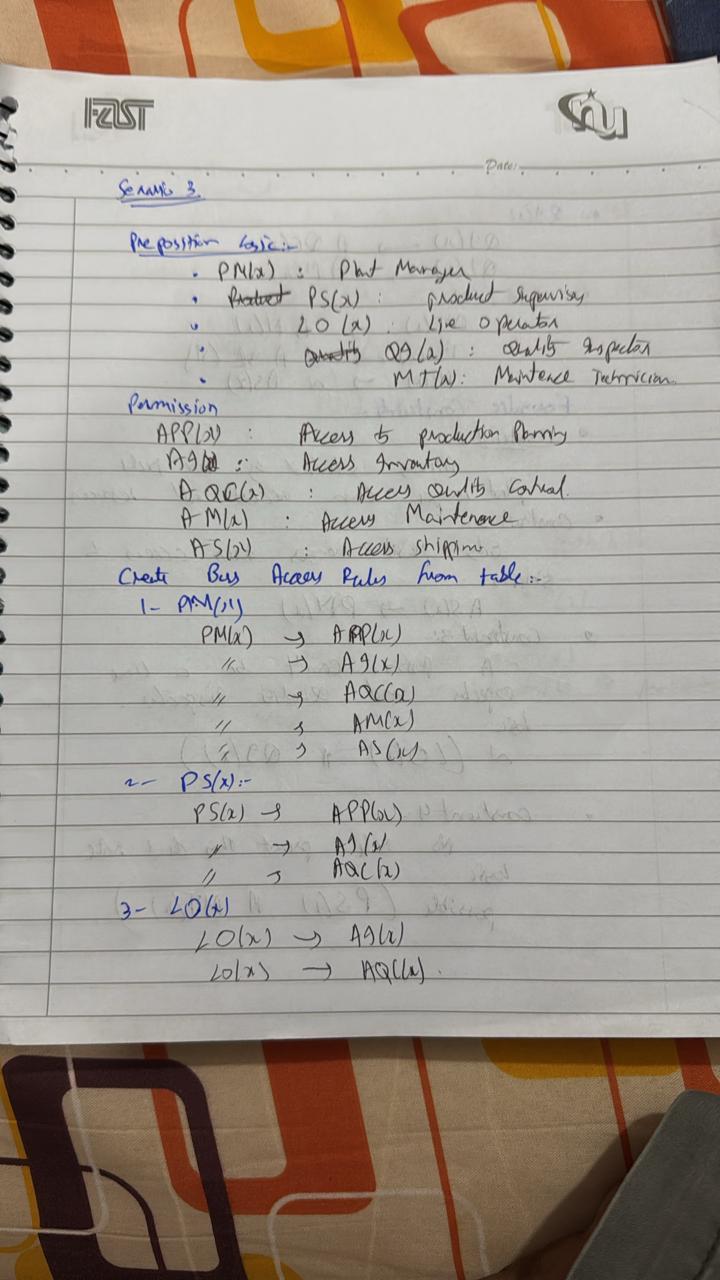 FAST
nu
Date:
Senario 3
Preposition Logic:-
• PM(x) : Plant Manager
• Product PS(x) : product Supervisor
• LO(x) : Line operator
• Quality QI(x) : Quality Inspector
• MT(x) : Maintence Technician
Permission
APP(x) : Access to production Planning
AI(x) : Access Inventory
AQC(x) : Access Quality Control.
AM(x) : Access Maintenance
AS(x) : Access shipping
Create Access Rules from table:-
1- PM(x)
PM(x) → APP(x)
〃 → AI(x)
〃 → AQC(x)
〃 → AM(x)
〃 → AS(x)
2- PS(x):-
PS(x) → APP(x)
〃 → AI(x)
〃 → AQC(x)
3- LO(x)
LO(x) → AI(x)
LO(x) → AQC(x).